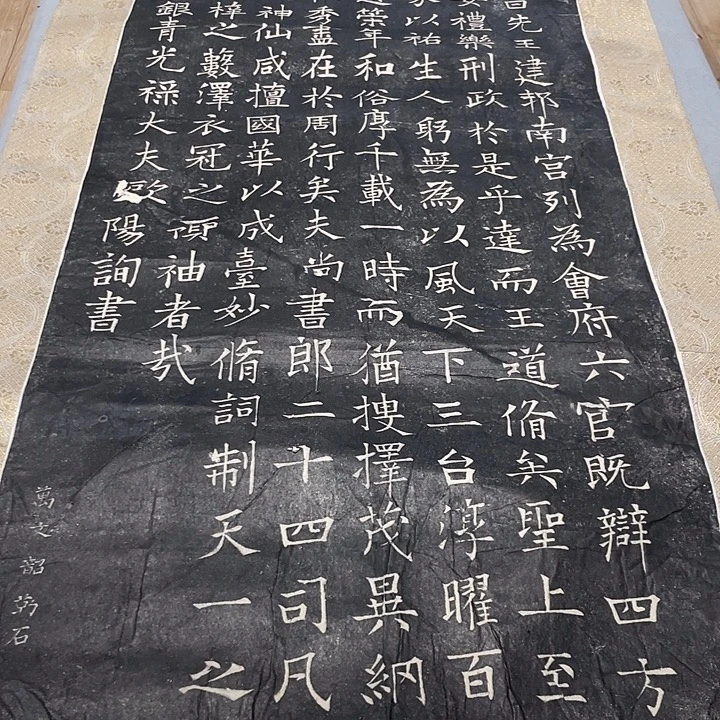 先王建邦南宮列為會府六官既辯四方
禮樂刑政於是乎達而王道脩矣聖上至
以祐生人躬無為以風天下三台淳曜百
榮年和俗厚千載一時而猶搜擇茂異網
秀盡在於周行矣夫尚書郎二十四司凡
神仙咸擅國華以成臺妙脩詞制天一之
梓之藪澤衣冠之領袖者哉
銀青光祿大夫歐陽詢書
萬文韶石